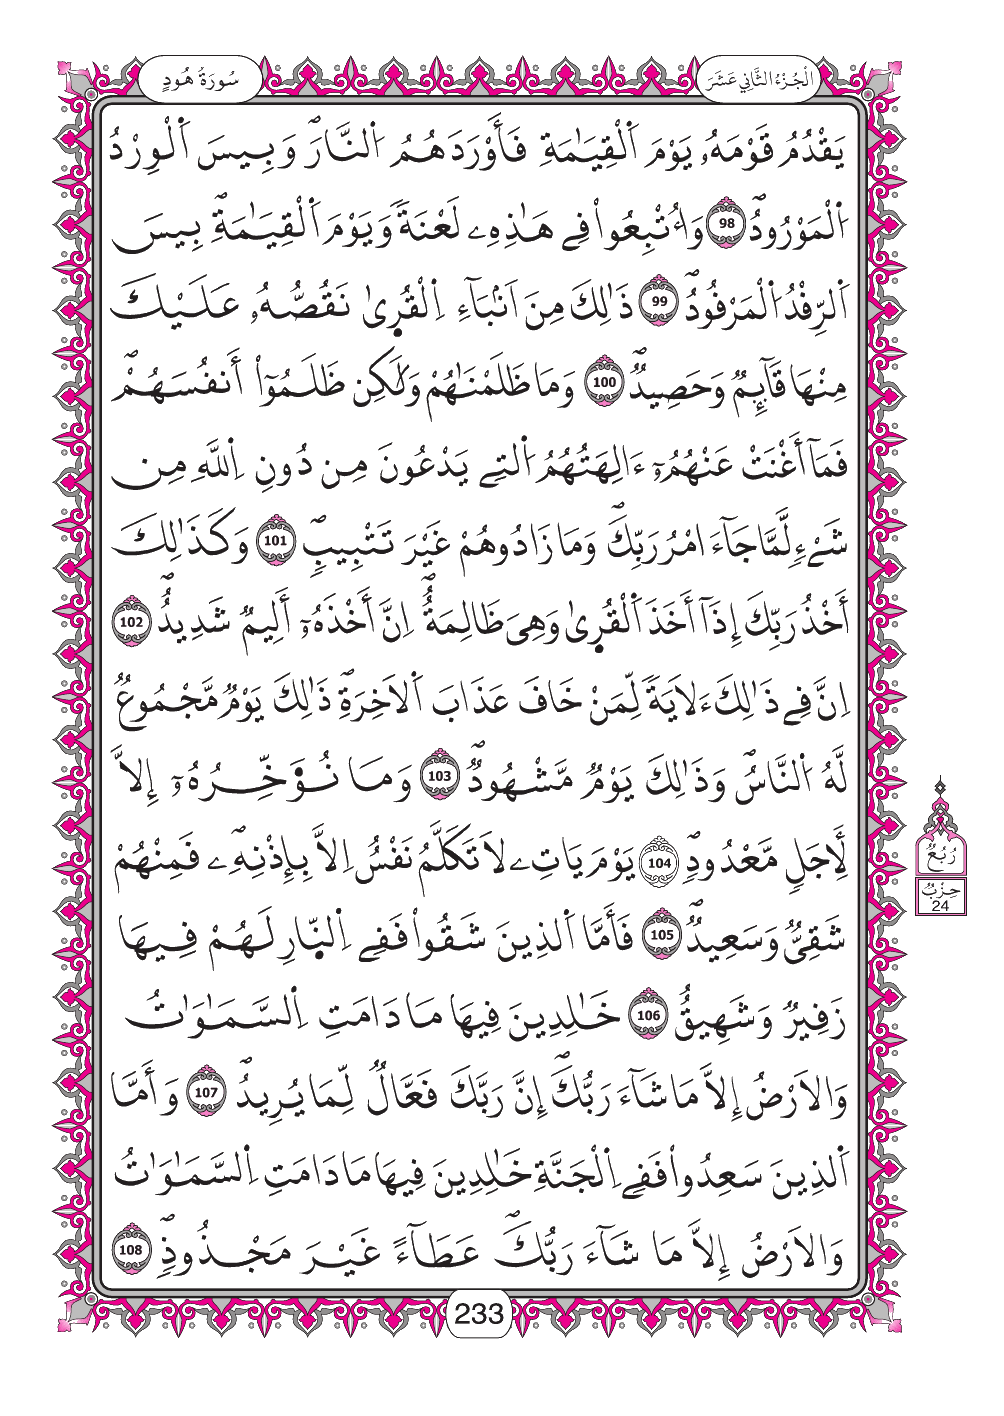 الْجُزْءُ الثَّانِي عَشَرَ
سُورَةُ هُودٍ
يَقْدُمُ قَوْمَهُۥ يَوْمَ اَ۬لْقِيَٰمَةِ فَأَوْرَدَهُمُ اُ۬لنَّارَۖ وَبِيسَ اَ۬لْوِرْدُ
اُ۬لْمَوْرُودُۖ 98 وَأُتْبِعُواْ فِے هَٰذِهِۦ لَعْنَةٗ وَيَوْمَ اَ۬لْقِيَٰمَةِۖ بِيسَ
اَ۬لرِّفْدُ اُ۬لْمَرْفُودُۖ 99 ذَٰلِكَ مِنَ اَنۢبَآءِ اِ۬لْقُر۪ىٰ نَقُصُّهُۥ عَلَيْكَ
مِنْهَا قَآئِمٞ وَحَصِيدٞۖ 100 وَمَا ظَلَمْنَٰهُمْ وَلَٰكِن ظَلَمُوٓاْ أَنفُسَهُمْۖ
فَمَآ أَغْنَتْ عَنْهُمُۥٓ ءَالِهَتُهُمُ اُ۬لتِے يَدْعُونَ مِن دُونِ اِ۬للَّهِ مِن
شَےْءٖ لَّمَّا جَآءَ امْرُ رَبِّكَۖ وَمَا زَادُوهُمْ غَيْرَ تَتْبِيبٖۖ 101 وَكَذَٰلِكَ
أَخْذُ رَبِّكَ إِذَآ أَخَذَ اَ۬لْقُر۪ىٰ وَهِيَ ظَٰلِمَةٌۖ اِنَّ أَخْذَهُۥٓ أَلِيمٞ شَدِيدٌۖ 102
اِنَّ فِے ذَٰلِكَ ءَلَايَةٗ لِّمَنْ خَافَ عَذَابَ اَ۬لَاخِرَةِۖ ذَٰلِكَ يَوْمٞ مَّجْمُوعٞ
لَّهُ اُ۬لنَّاسُۖ وَذَٰلِكَ يَوْمٞ مَّشْهُودٞۖ 103 وَمَا نُؤَخِّرُهُۥٓ إِلَّا
لِأَجَلٖ مَّعْدُودٖۖ 104 يَوْمَ يَاتِۦ لَا تَكَلَّمُ نَفْسٌ اِلَّا بِإِذْنِهِۦۖ فَمِنْهُمْ
شَقِيّٞ وَسَعِيدٞۖ 105 فَأَمَّا اَ۬لذِينَ شَقُواْ فَفِے اِ۬لنّ۪ارِ لَهُمْ فِيهَا
زَفِيرٞ وَشَهِيقٌ 106 خَٰلِدِينَ فِيهَا مَا دَامَتِ اِ۬لسَّمَٰوَٰتُ
وَالَارْضُ إِلَّا مَا شَآءَ رَبُّكَۖ إِنَّ رَبَّكَ فَعَّالٞ لِّمَا يُرِيدُۖ 107 وَأَمَّا
اَ۬لذِينَ سَعِدُواْ فَفِے اِ۬لْجَنَّةِ خَٰلِدِينَ فِيهَا مَا دَامَتِ اِ۬لسَّمَٰوَٰتُ
وَالَارْضُ إِلَّا مَا شَآءَ رَبُّكَۖ عَطَآءً غَيْرَ مَجْذُوذٖۖ 108
رُبُعٌ
حِزْبٌ
24
233